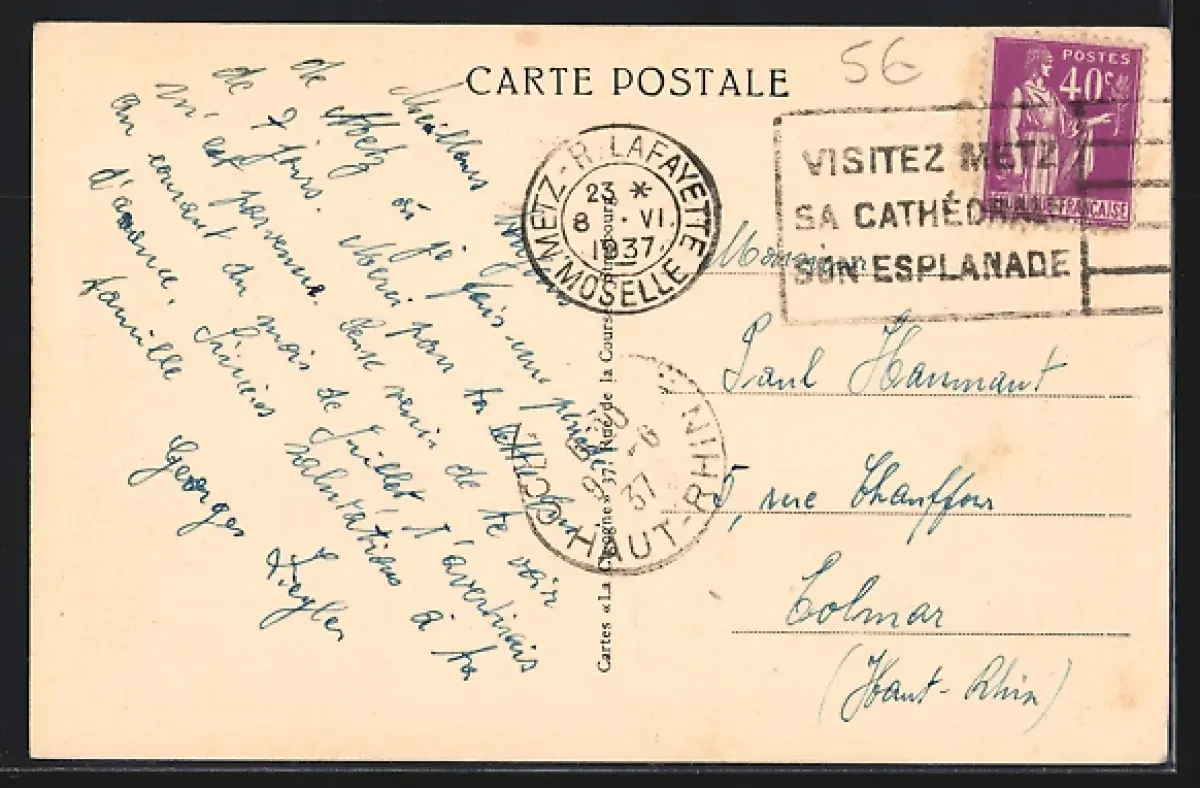 CARTE POSTALE
56
POSTES
40c
RÉPUBLIQUE FRANÇAISE
METZ - R. LAFAYETTE
23 *
8 - VI
1937
MOSELLE
VISITEZ METZ
SA CATHÉDRALE
SON ESPLANADE
Meilleurs
de Metz où je fais une période
de 7 jours. Merci pour ta lettre qui
m'est parvenue. Pense venir de te voir
au courant du mois de Juillet, t'avertirais
d'avance. Sincères salutations à ta
famille
Georges Ziegler
Cartes « La Cigogne » 37, Rue de la Course
Monsieur
Paul Haumant
5, rue Chauffour
Colmar
(Haut-Rhin)
HAUT-RHIN
37